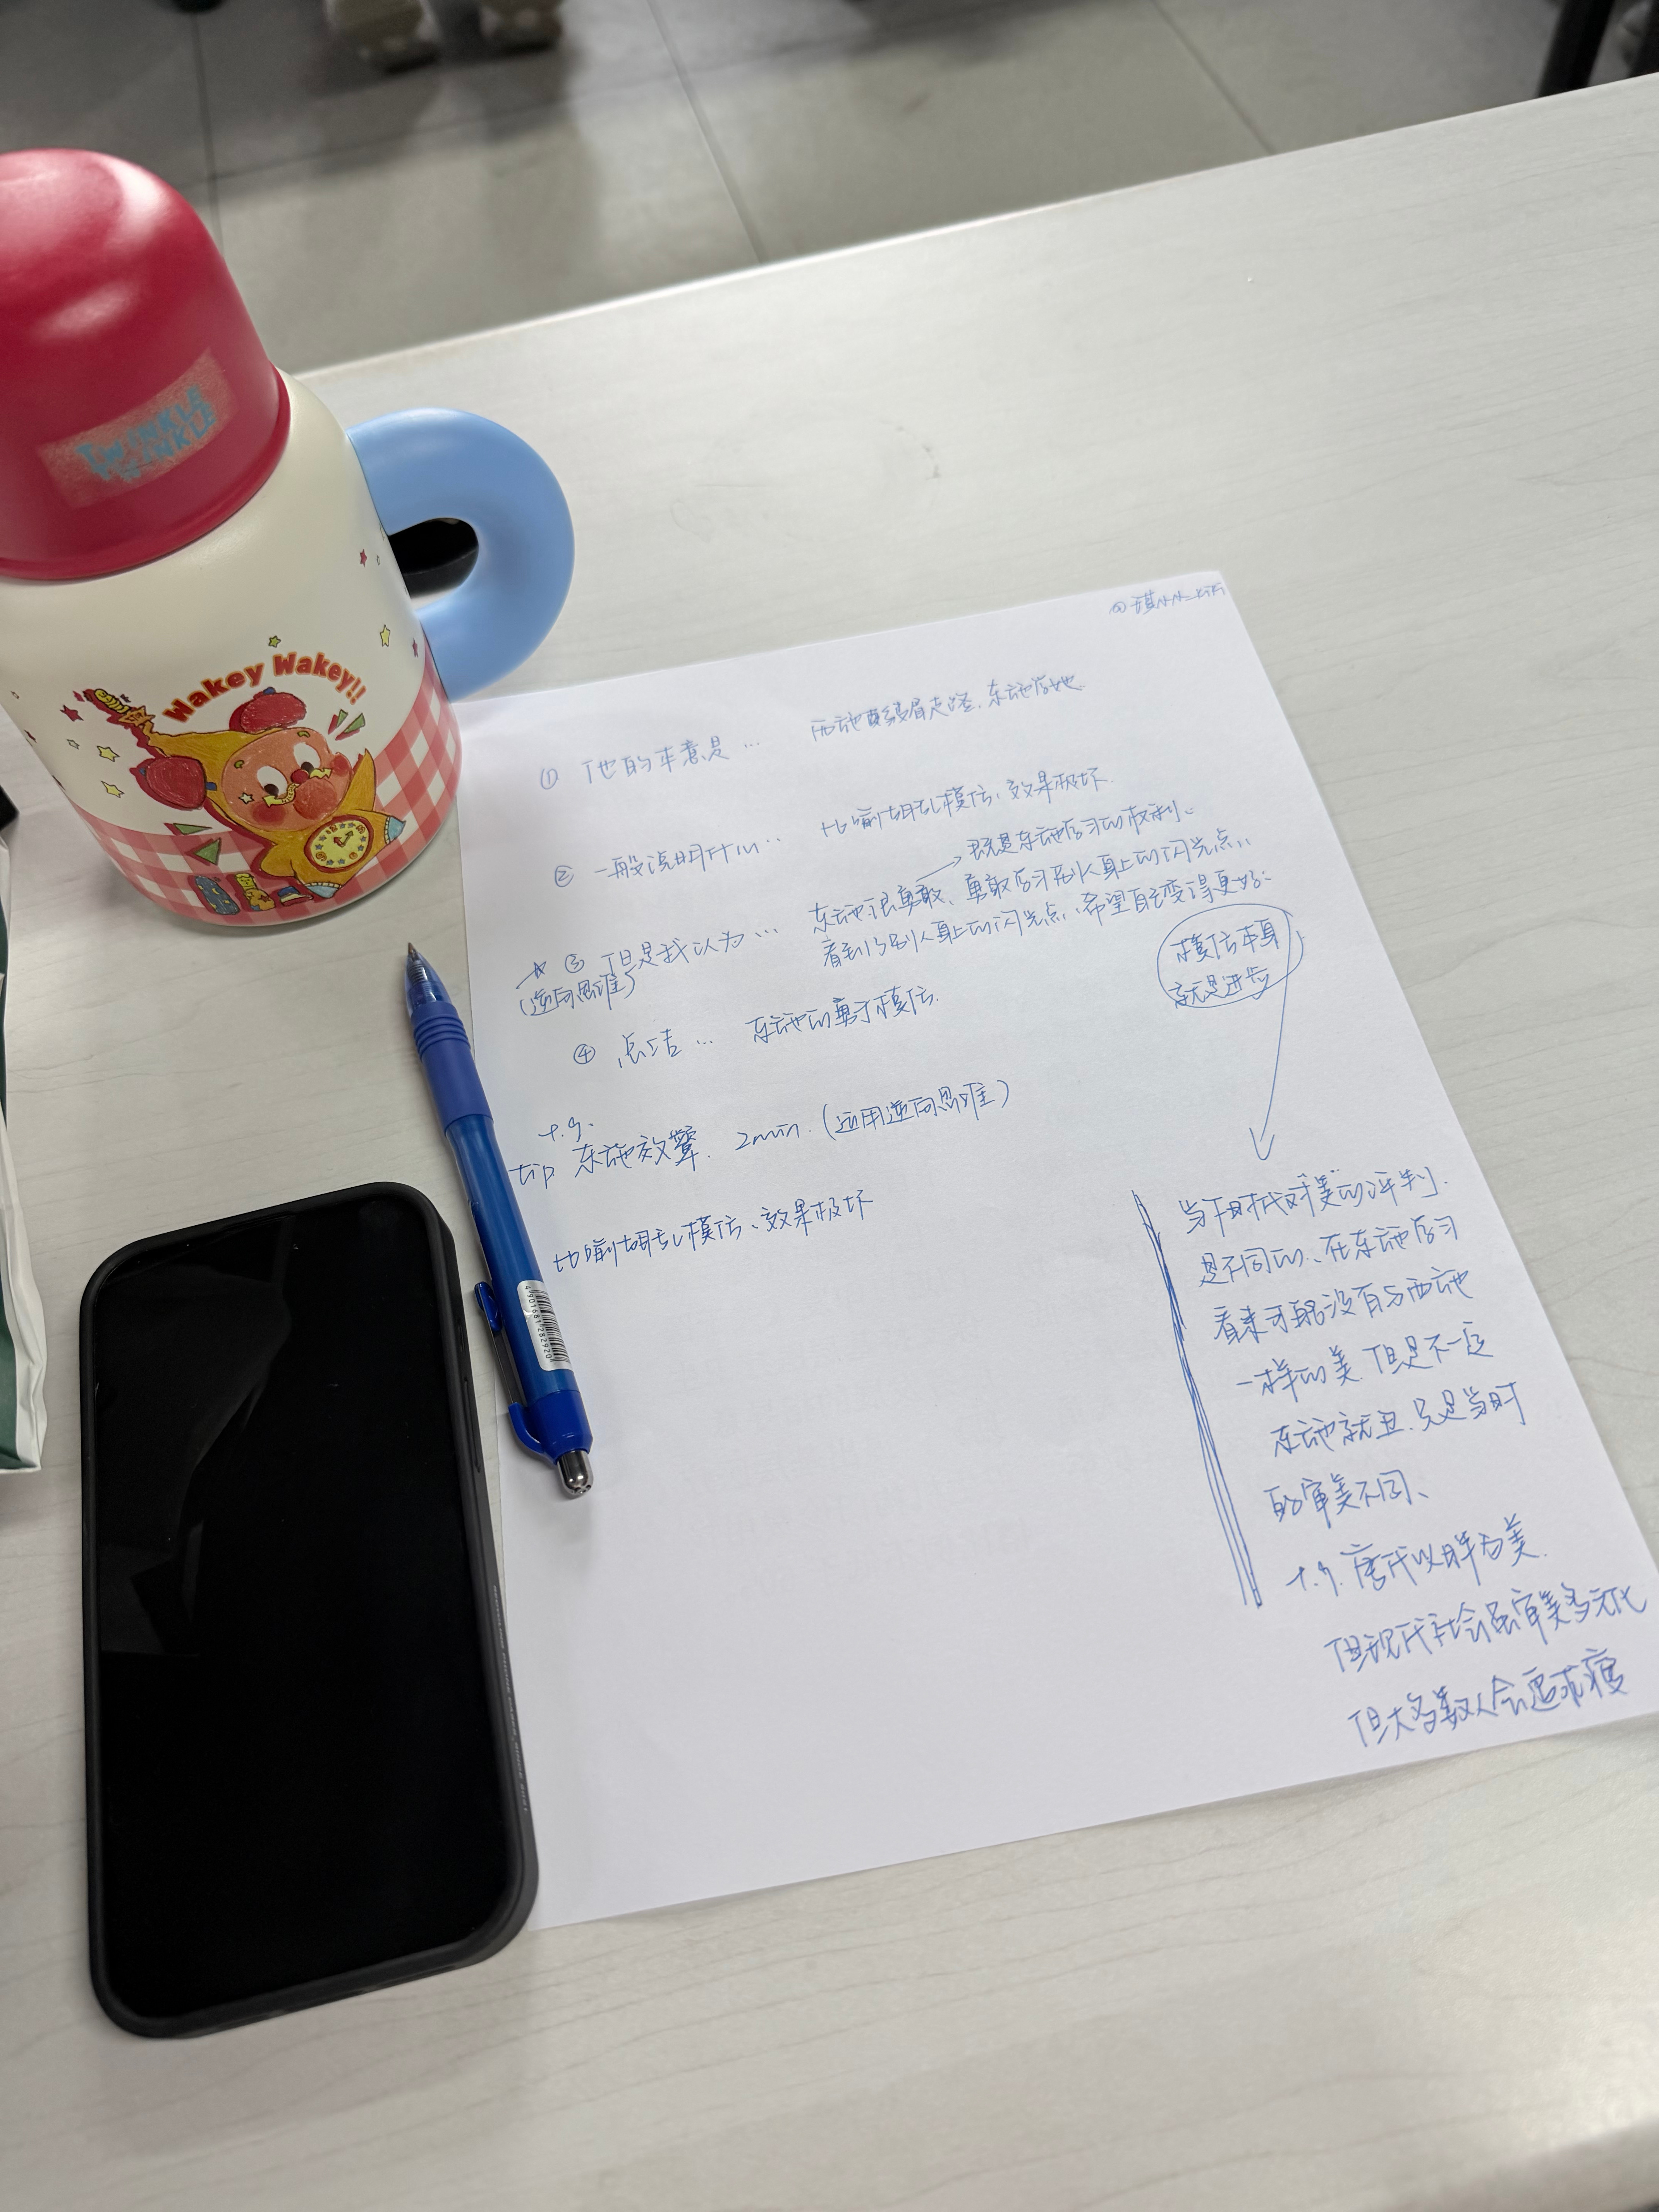 TWINKLE
TWINKLE
Wakey Wakey!!
4901681282920
① 他的本意是… 西施真皱眉走路、东施学她
② 一般说明什么… 比喻胡乱模仿、效果极坏.
既是东施学习的权利、
☆ ③ 但是我认为… 东施很勇敢、勇敢学习别人身上的闪光点、
(逆向思维) 看到了别人身上的闪光点、希望自己变得更好、
模仿本身
就是进步
④ 总结… 东施的勇于模仿.
e.g.
tip 东施效颦. 2min. (运用逆向思维)
比喻胡乱模仿、效果极坏
当下时代对“美”的评判.
是不同的、在东施学习
看来可能没有与西施
一样的美 但是不一定
东施就丑、只是当时
的审美不同、
e.g. 唐代以胖为美.
但现代社会虽审美多元化
但大多数人会追求瘦